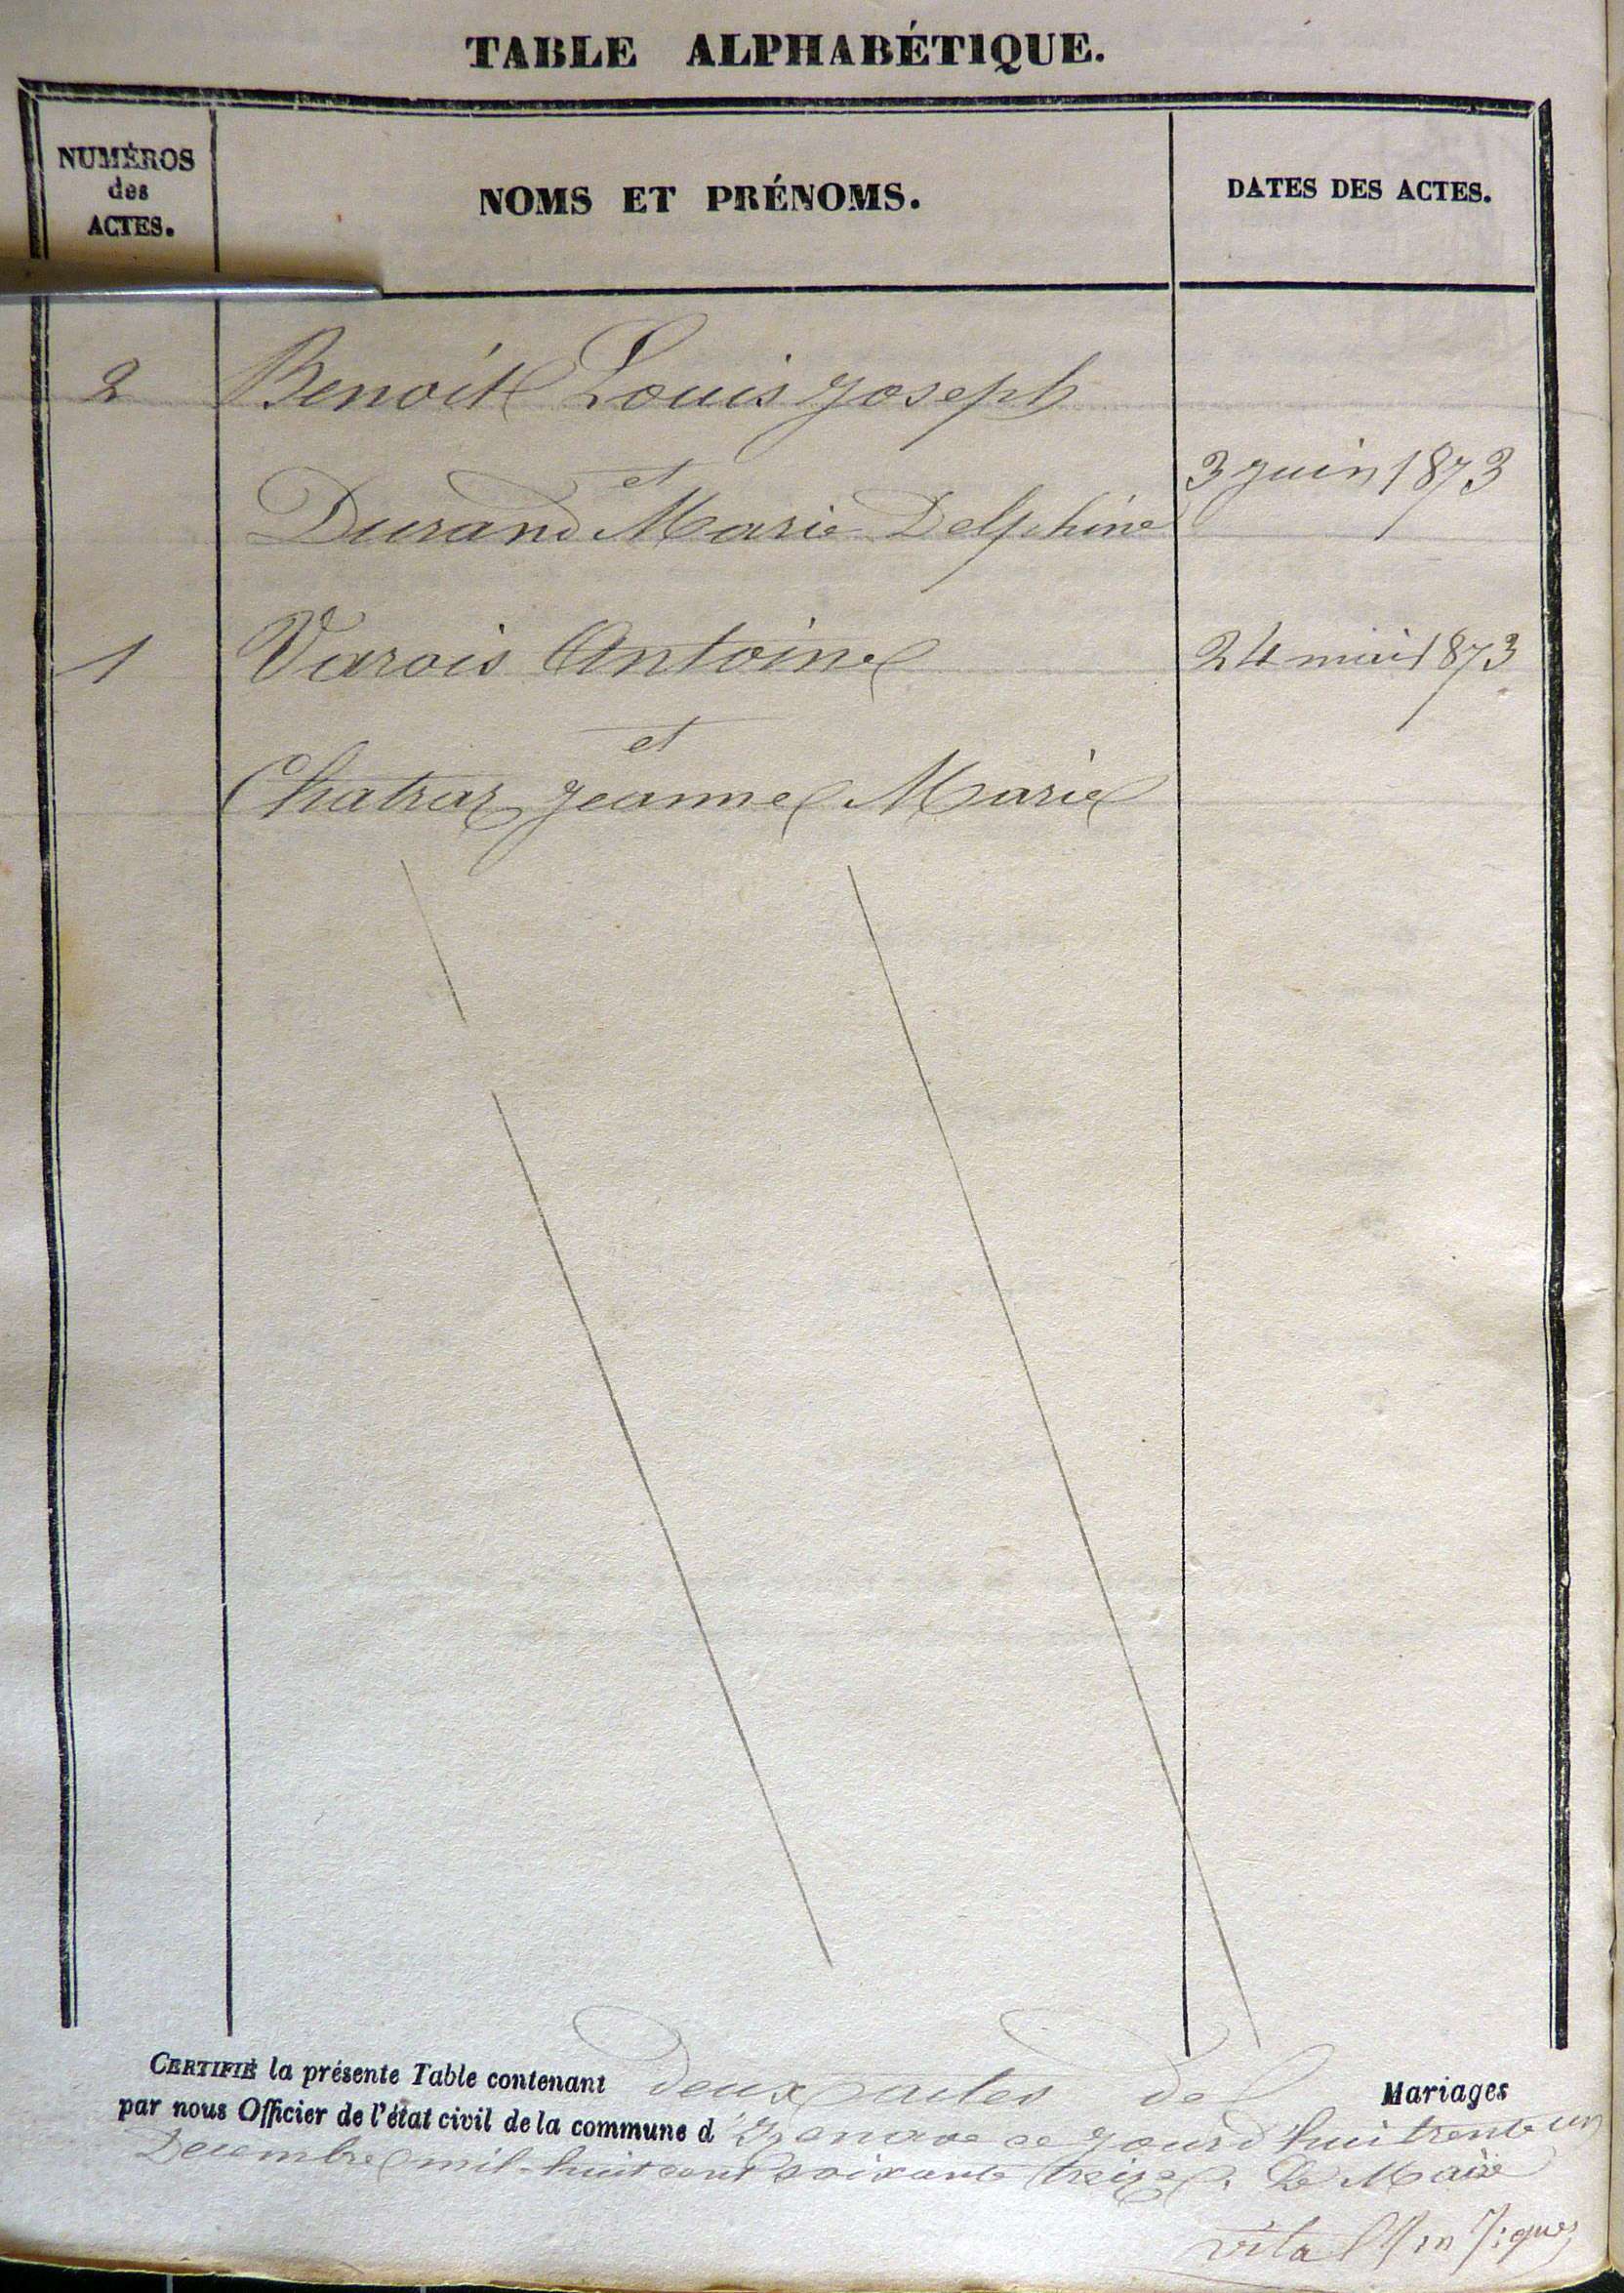 TABLE ALPHABÉTIQUE.
NUMÉROS
des
ACTES.
NOMS ET PRÉNOMS.
DATES DES ACTES.
2 Benoit Louis Joseph
et
3 juin 1873
Durand Marie Delphine
1 Varois Antoine 24 mai 1873
et
Chatrar Jeanne Marie
CERTIFIÉ la présente Table contenant deux actes de Mariages
par nous Officier de l'état civil de la commune d'Izenave ce jourd'hui trente un
Decembre mil-huit cent soixante treize. Le Maire